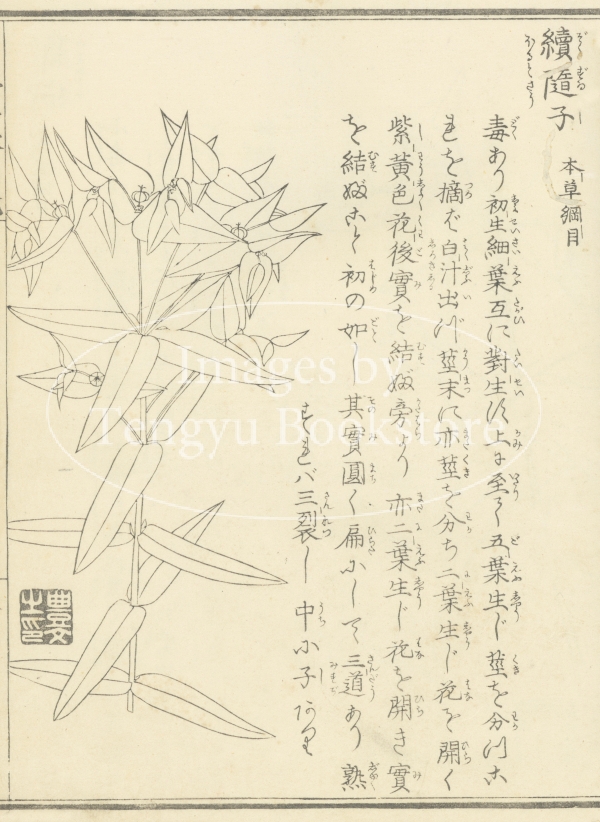 續隨子 本草綱目
ぞくずゐし
ほるとさう
毒あり初生細葉互に對生す上に至て五葉生じ莖を分つこ
れを摘ば白汁出づ莖末に亦莖を分ち二葉生じ花を開く
紫黄色花後實を結ぶ旁より亦二葉生じ花を開き實
を結ぶこと初の如し其實圓く扁にして三道あり熟
すれバ三裂し中に子あり
Images by
Tengyu Bookstore